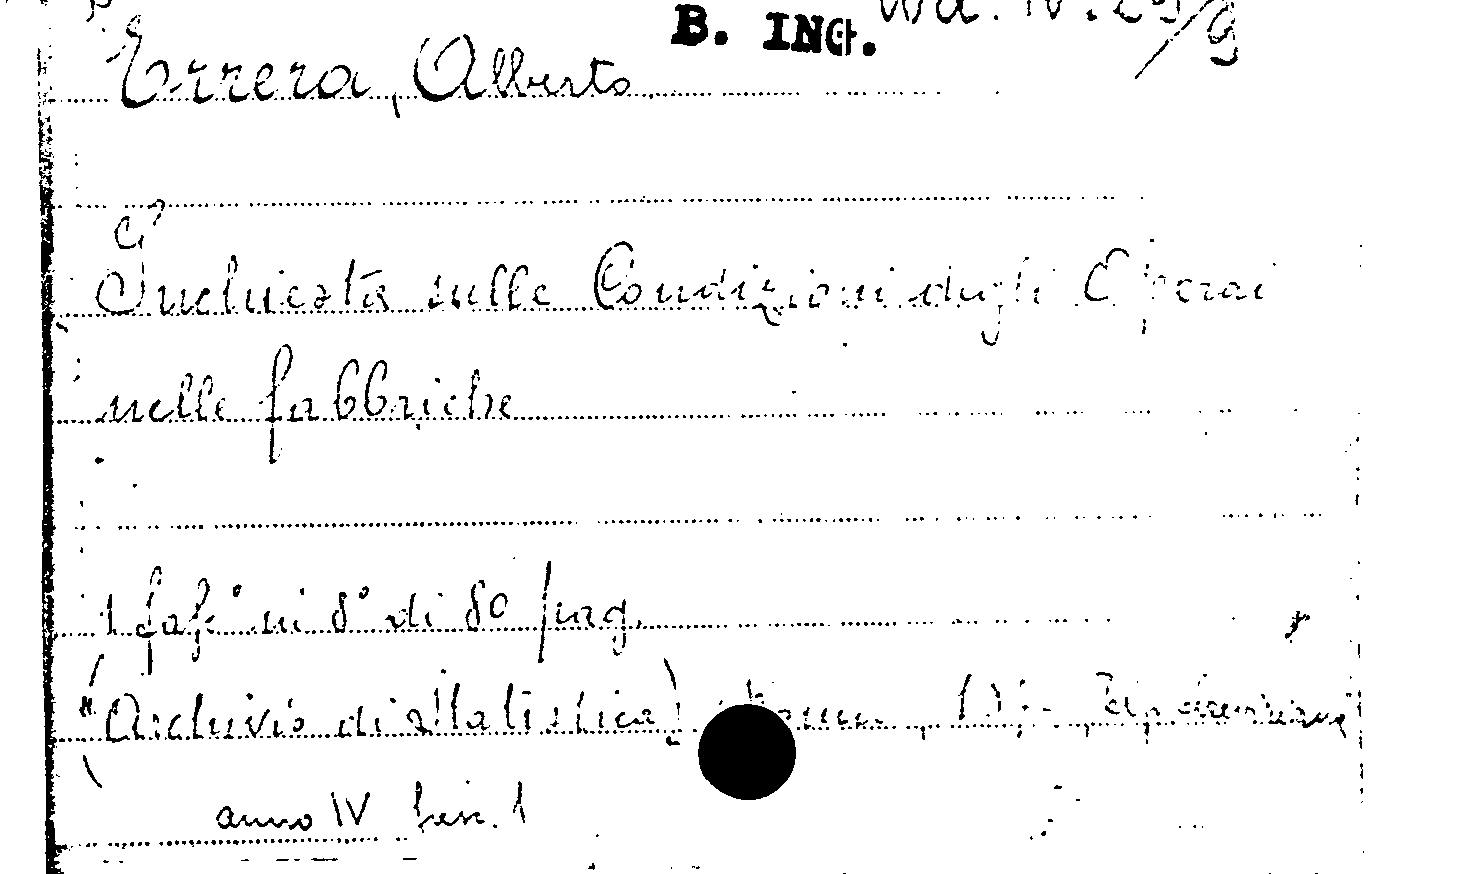 B. ING.
Errera, Alberto
Inchiesta sulle Condizioni degli Operai
nelle fabbriche
1 fasc° in 8° di 80 pag.
(Archivio di Statistica)
anno IV fasc. 1